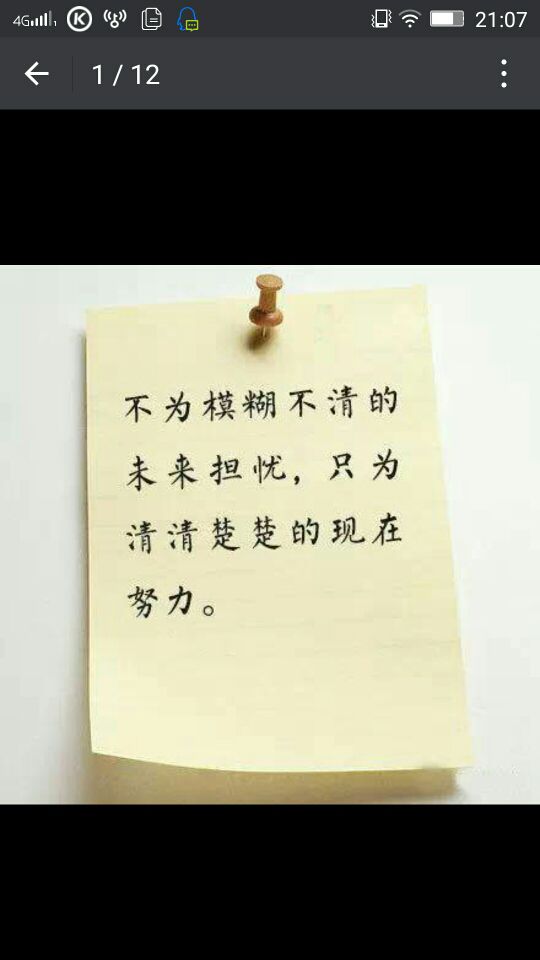 4G 21:07
1 / 12
不为模糊不清的
未来担忧，只为
清清楚楚的现在
努力。